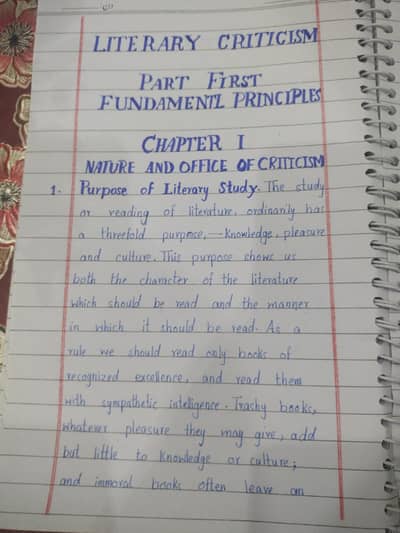 LITERARY CRITICISM
PART FIRST
FUNDAMENTL PRINCIPLES
CHAPTER I
NATURE AND OFFICE OF CRITICISM
1. Purpose of Literary Study. The study
or reading of literature, ordinarily has
a threefold purpose, — knowledge, pleasure
and culture. This purpose shows us
both the character of the literature
which should be read and the manner
in which it should be read. As a
rule we should read only books of
recognized excellence, and read them
with sympathetic inteligence. Trashy books,
whatever pleasure they may give, add
but little to knowledge or culture;
and immoral books often leave an